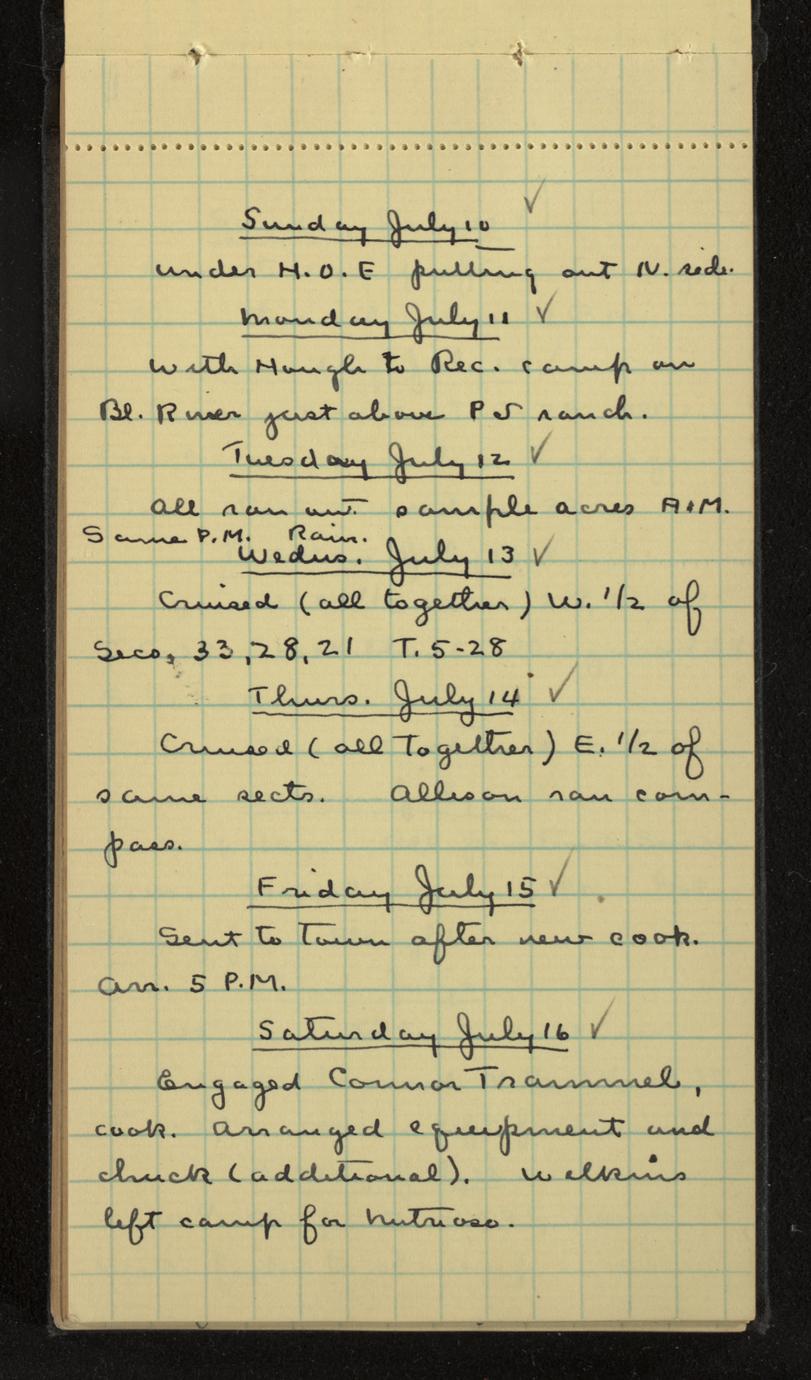 Sunday July 10 ✓
under H.O.E pulling out N. side.
Monday July 11 ✓
With Hough to Rec. camp on
Bl. River just above PS ranch.
Tuesday July 12 ✓
All ran out sample acres A.M.
Same P.M. Rain.
Wednes. July 13 ✓
Cruised (all together) W. 1/2 of
Secs. 33, 28, 21 T. 5-28
Thurs. July 14 ✓
Cruised (all together) E. 1/2 of
same sects. Allison ran com-
pass.
Friday July 15 ✓
Sent to town after new cook.
Arr. 5 P.M.
Saturday July 16 ✓
Engaged Connor Trammel,
cook. Arranged equipment and
chuck (additional). Wilkins
left camp for Nutrioso.